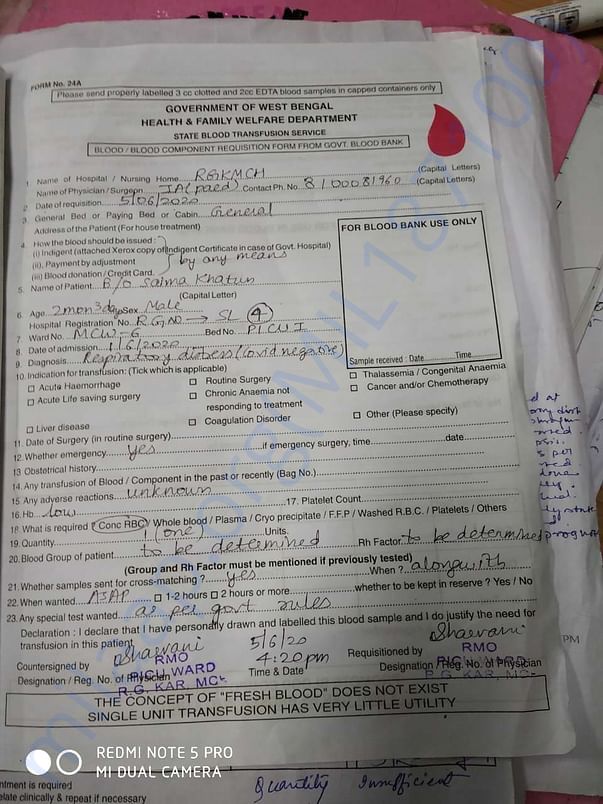 FORM No. 24A
Please send properly labelled 3 cc clotted and 2cc EDTA blood samples in capped containers only
GOVERNMENT OF WEST BENGAL
HEALTH & FAMILY WELFARE DEPARTMENT
STATE BLOOD TRANSFUSION SERVICE
BLOOD / BLOOD COMPONENT REQUISITION FORM FROM GOVT. BLOOD BANK
1. Name of Hospital / Nursing Home RGKMCH (Capital Letters)
Name of Physician / Surgeon IA(paed) Contact Ph. No. 8100081960 (Capital Letters)
2. Date of requisition 5/06/2020
3. General Bed or Paying Bed or Cabin General
Address of the Patient (For house treatment)
4. How the blood should be issued :
(i) Indigent (attached Xerox copy of Indigent Certificate in case of Govt. Hospital)
(ii). Payment by adjustment } by any means
(iii) Blood donation / Credit Card.
5. Name of Patient B/o Saima Khatun
(Capital Letter)
6. Age 2mon 3days Sex Male
Hospital Registration No. RG ND → SL 4
7. Ward No. MCW-6 Bed No. PICU I
8. Date of admission 1/6/2020
9. Diagnosis Respiratory distress (Covid negative)
FOR BLOOD BANK USE ONLY
Sample received : Date Time
10. Indication for transfusion: (Tick which is applicable)
□ Acute Haemorrhage □ Routine Surgery □ Thalassemia / Congenital Anaemia
□ Acute Life saving surgery □ Chronic Anaemia not responding to treatment □ Cancer and/or Chemotherapy
□ Liver disease □ Coagulation Disorder □ Other (Please specify)
11. Date of Surgery (in routine surgery)
12. Whether emergency yes if emergency surgery, time date
13. Obstetrical history
14. Any transfusion of Blood / Component in the past or recently (Bag No.)
15. Any adverse reactions unknown
16. Hb. low 17. Platelet Count
18. What is required Conc RBC / Whole blood / Plasma / Cryo precipitate / F.F.P / Washed R.B.C. / Platelets / Others
19. Quantity 1 (one) Units.
20. Blood Group of patient to be determined Rh Factor to be determined
(Group and Rh Factor must be mentioned if previously tested)
21. Whether samples sent for cross-matching ? yes When ? alongwith
22. When wanted ASAP □ 1-2 hours □ 2 hours or more whether to be kept in reserve ? Yes / No
23. Any special test wanted as per govt rules
Declaration : I declare that I have personally drawn and labelled this blood sample and I do justify the need for
transfusion in this patient
Countersigned by 5/6/20 Requisitioned by
RMO 4:20pm RMO
Designation / Reg. No. of Physician Time & Date Designation / Reg. No. of Physician
PICU WARD PICU WARD
R.G. KAR. MC R.G. KAR. MC
THE CONCEPT OF "FRESH BLOOD" DOES NOT EXIST
SINGLE UNIT TRANSFUSION HAS VERY LITTLE UTILITY
PM
REDMI NOTE 5 PRO
MI DUAL CAMERA
ntment is required
elate clinically & repeat if necessary
Quantity Insufficient